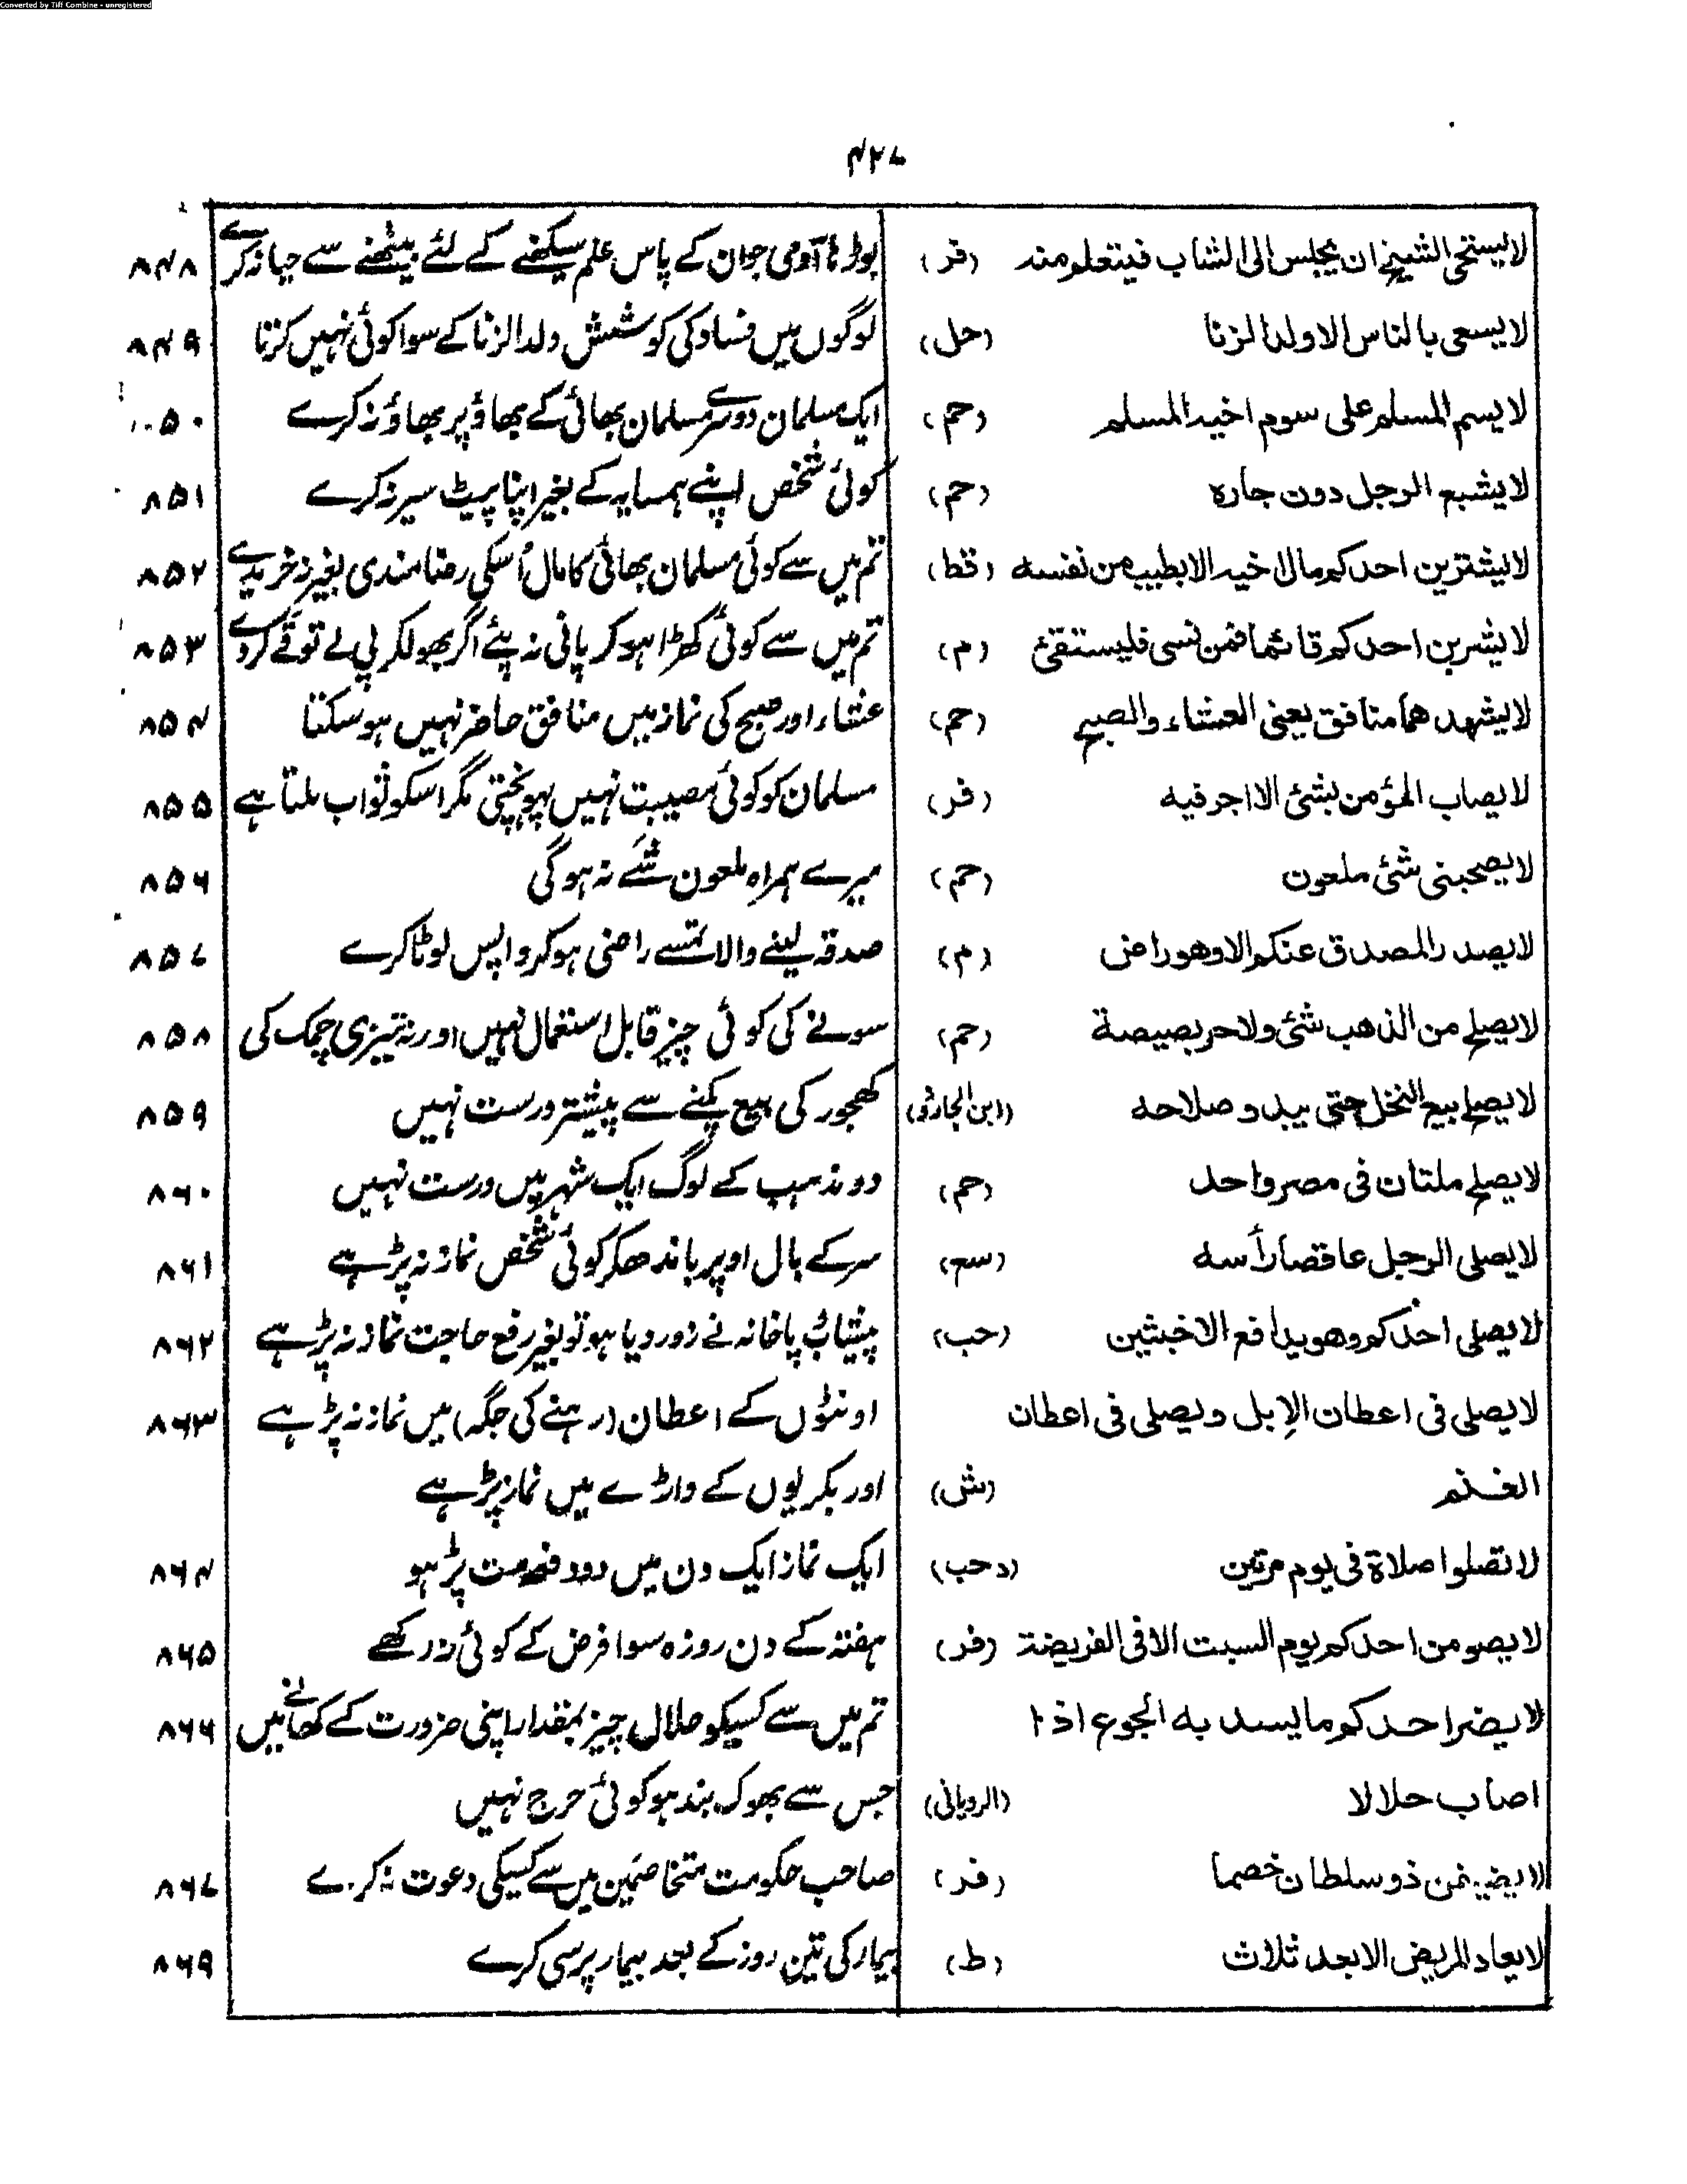 Converted by Tiff Combine - unregistered
۴۲۷
لا یستحی الشیخ ان یجلس الی الشاب فیتعلم منہ (فر) بوڑھا آدمی جوان کے پاس علم سیکھنے کے لئے بیٹھنے سے حیا نہ کرے ۸۴۸
لا یسعی بالناس الا ولد الزنا (حل) لوگوں میں فساد کی کوشش ولد الزنا کے سوا کوئی نہیں کرتا ۸۴۹
لا یسم المسلم علی سوم اخیہ المسلم (حم) ایک مسلمان دوسرے مسلمان بھائی کے بھاؤ پر بھاؤ نہ کرے ۵۰
لا یشبع الرجل دون جارہ (حم) کوئی شخص اپنے ہمسایہ کے بغیر اپنا پیٹ سیر نہ کرے ۸۵۱
لا یشترین احدکم مال اخیہ الا بطیب من نفسہ (قط) تم میں سے کوئی مسلمان بھائی کا مال اُسکی رضامندی بغیر نہ خریدے ۸۵۲
لا یشربن احدکم قائما فمن نسی فلیستقئ (م) تم میں سے کوئی کھڑا ہو کر پانی نہ پئے اگر بھولکر پی لے تو قے کردے ۸۵۳
لا یشہدهما منافق یعنی العشاء والصبح (حم) عشاء اور صبح کی نماز میں منافق حاضر نہیں ہو سکتا ۸۵۴
لا یصاب المؤمن بشئ الا اجر فیہ (فر) مسلمان کو کوئی مصیبت نہیں پہونچتی مگر اسکو ثواب ملتا ہے ۸۵۵
لا یصحبنی شئ ملعون (حم) میرے ہمراہ ملعون شَے نہ ہو گی ۸۵۶
لا یصدر المصدق عنکم الا وهو راض (م) صدقہ لینے والا تمسے راضی ہو کر واپس لوٹا کرے ۸۵۷
لا یصلح من الذهب شئ ولا حربصیصة (حم) سونے کی کوئی چیز قابل استعمال نہیں اور نہ تیزی چمک کی ۸۵۸
لا یصلح بیع النخل حتی یبدو صلاحہ (ابن الجارود) کھجور کی بیع پکنے سے پیشتر درست نہیں ۸۵۹
لا یصلح ملتان فی مصر واحد (حم) دو مذہب کے لوگ ایک شہر میں درست نہیں ۸۶۰
لا یصلی الرجل عاقصا رأسہ (سع) سر کے بال اوپر باندھکر کوئی شخص نماز نہ پڑہے ۸۶۱
لا یصلی احدکم وهو یدافع الاخبثین (حب) پیشاب پاخانہ نے زور دیا ہو تو بغیر رفع حاجت نماز نہ پڑہے ۸۶۲
لا یصلی فی اعطان الاِبل ویصلی فی اعطان اونٹوں کے اعطان (رہنے کی جگہ) میں نماز نہ پڑہے ۸۶۳
الغنم (ش) اور بکریوں کے واڑے میں نماز پڑہے
لا تصلوا صلاة فی یوم مرتین (دحب) ایک نماز ایک دن میں دو دفعہ مت پڑہو ۸۶۴
لا یصومن احدکم یوم السبت الا فی الفریضة (فر) ہفتہ کے دن روزہ سوا فرض کے کوئی نہ رکھے ۸۶۵
لا یضر احدکم ما یسد بہ الجوع اذا تم میں سے کسیکو حلال چیز بمقدار اپنی ضرورت کے کھانے میں ۸۶۶
اصاب حلالا (الرویانی) جس سے بھوک بند ہو کوئی حرج نہیں
لا یضیفن ذو سلطان خصما (فر) صاحب حکومت متخاصمین میں سے کسیکی دعوت نہ کرے ۸۶۷
لا یعاد المریض الا بعد ثلاث (ط) بیمار کی تین روز کے بعد بیمار پرسی کرے ۸۶۹